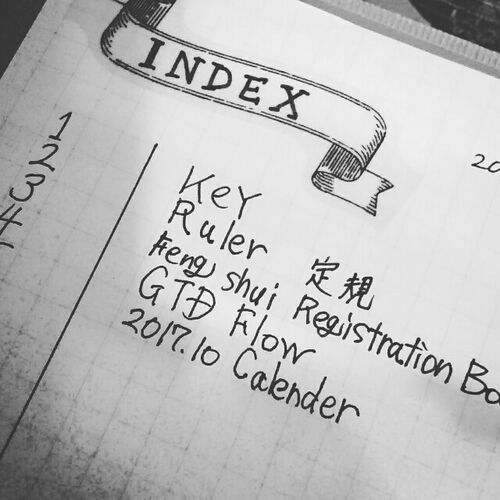 INDEX
20
1 Key
2 Ruler 定規
3 Feng shui Registration Bo
4 GTD Flow
2017.10 Calender